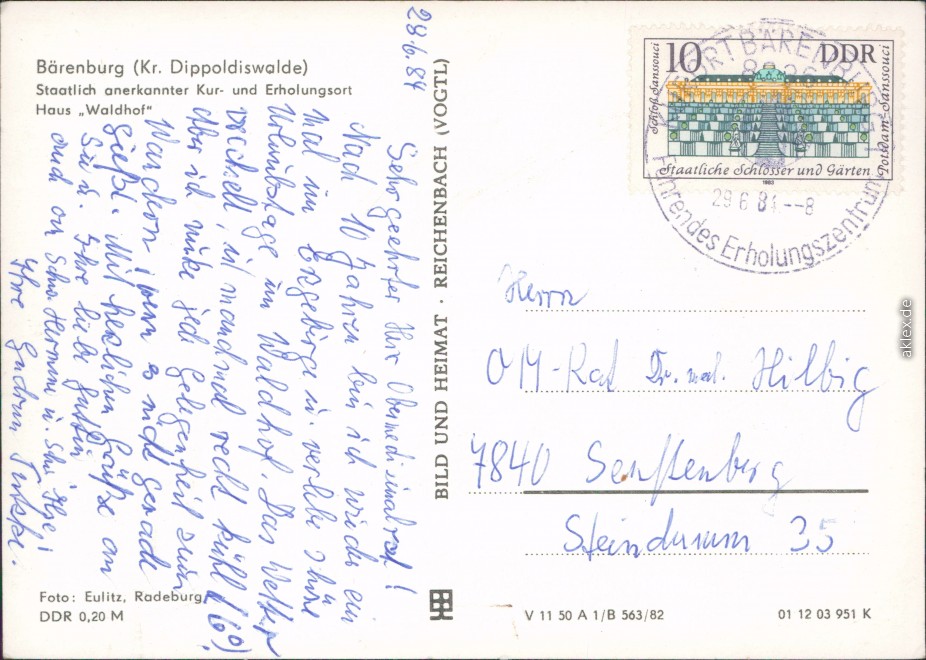 Bärenburg (Kr. Dippoldiswalde)
Staatlich anerkannter Kur- und Erholungsort
Haus „Waldhof"
28.6.84
Sehr geehrter Herr Obermedizinalrat!
Nach 10 Jahren bin ich wieder ein
mal im Erzgebirge u. verlebe
Urlaubstage im Waldhof. Das Wetter
wechselt, ist manchmal recht kühl (6°)
Aber ich nutze jede Gelegenheit zum
Wandern, wenn es nicht gerade
gießt. Mit herzlichen Grüßen an
Sie u. Ihre liebe Gattin
auch an Schw. Hermine u. Schw. Ilse,
Ihre Gudrun
Foto: Eulitz, Radeburg
DDR 0,20 M
BILD UND HEIMAT · REICHENBACH (VOGTL)
10 DDR
Schloß Sanssouci
Potsdam-Sanssouci
Staatliche Schlösser und Gärten
1983
29.6.84--8
Führendes Erholungszentrum
Herrn
OM-Rat Dr. med. Hilbig
7840 Senftenberg
Steindamm 35
V 11 50 A 1/B 563/82
01 12 03 951 K
aklex.de